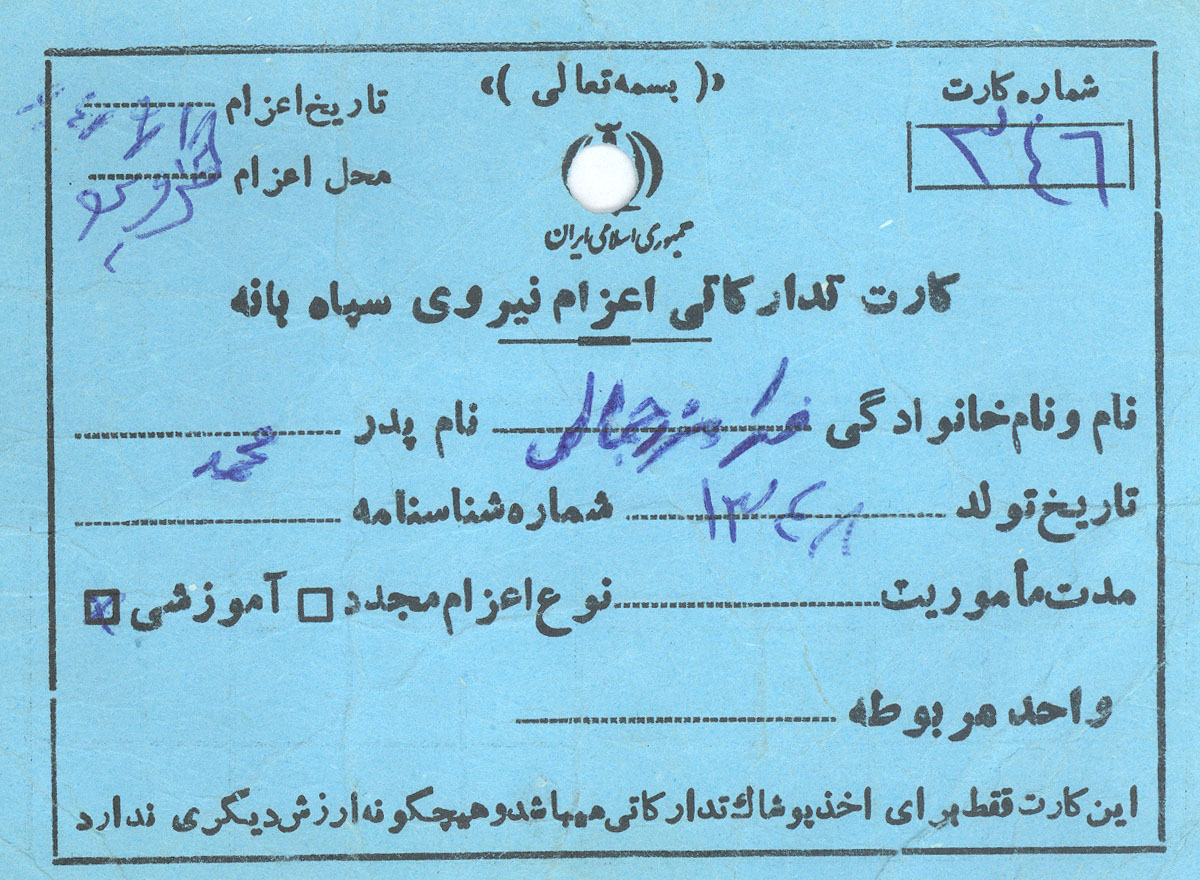 «( بسمه تعالی )»
شماره کارت
۳۴۶
تاریخ اعزام
محل اعزام
جمهوری اسلامی ایران
کارت تدارکاتی اعزام نیروی سپاه بانه
نام و نام خانوادگی جمالی نام پدر محمد
تاریخ تولد ۱۳۴۸ شماره شناسنامه
مدت مأموریت نوع اعزام مجدد آموزشی
واحد مربوطه
این کارت فقط برای اخذ پوشاك تدارکاتی میباشد و هیچگونه ارزش دیگری ندارد